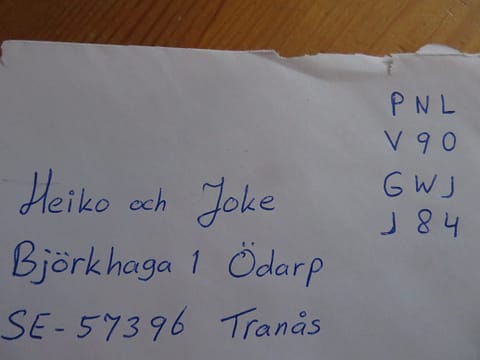 PNL
V90
GWJ
J84
Heiko och Joke
Björkhaga 1 Ödarp
SE-57396 Tranås